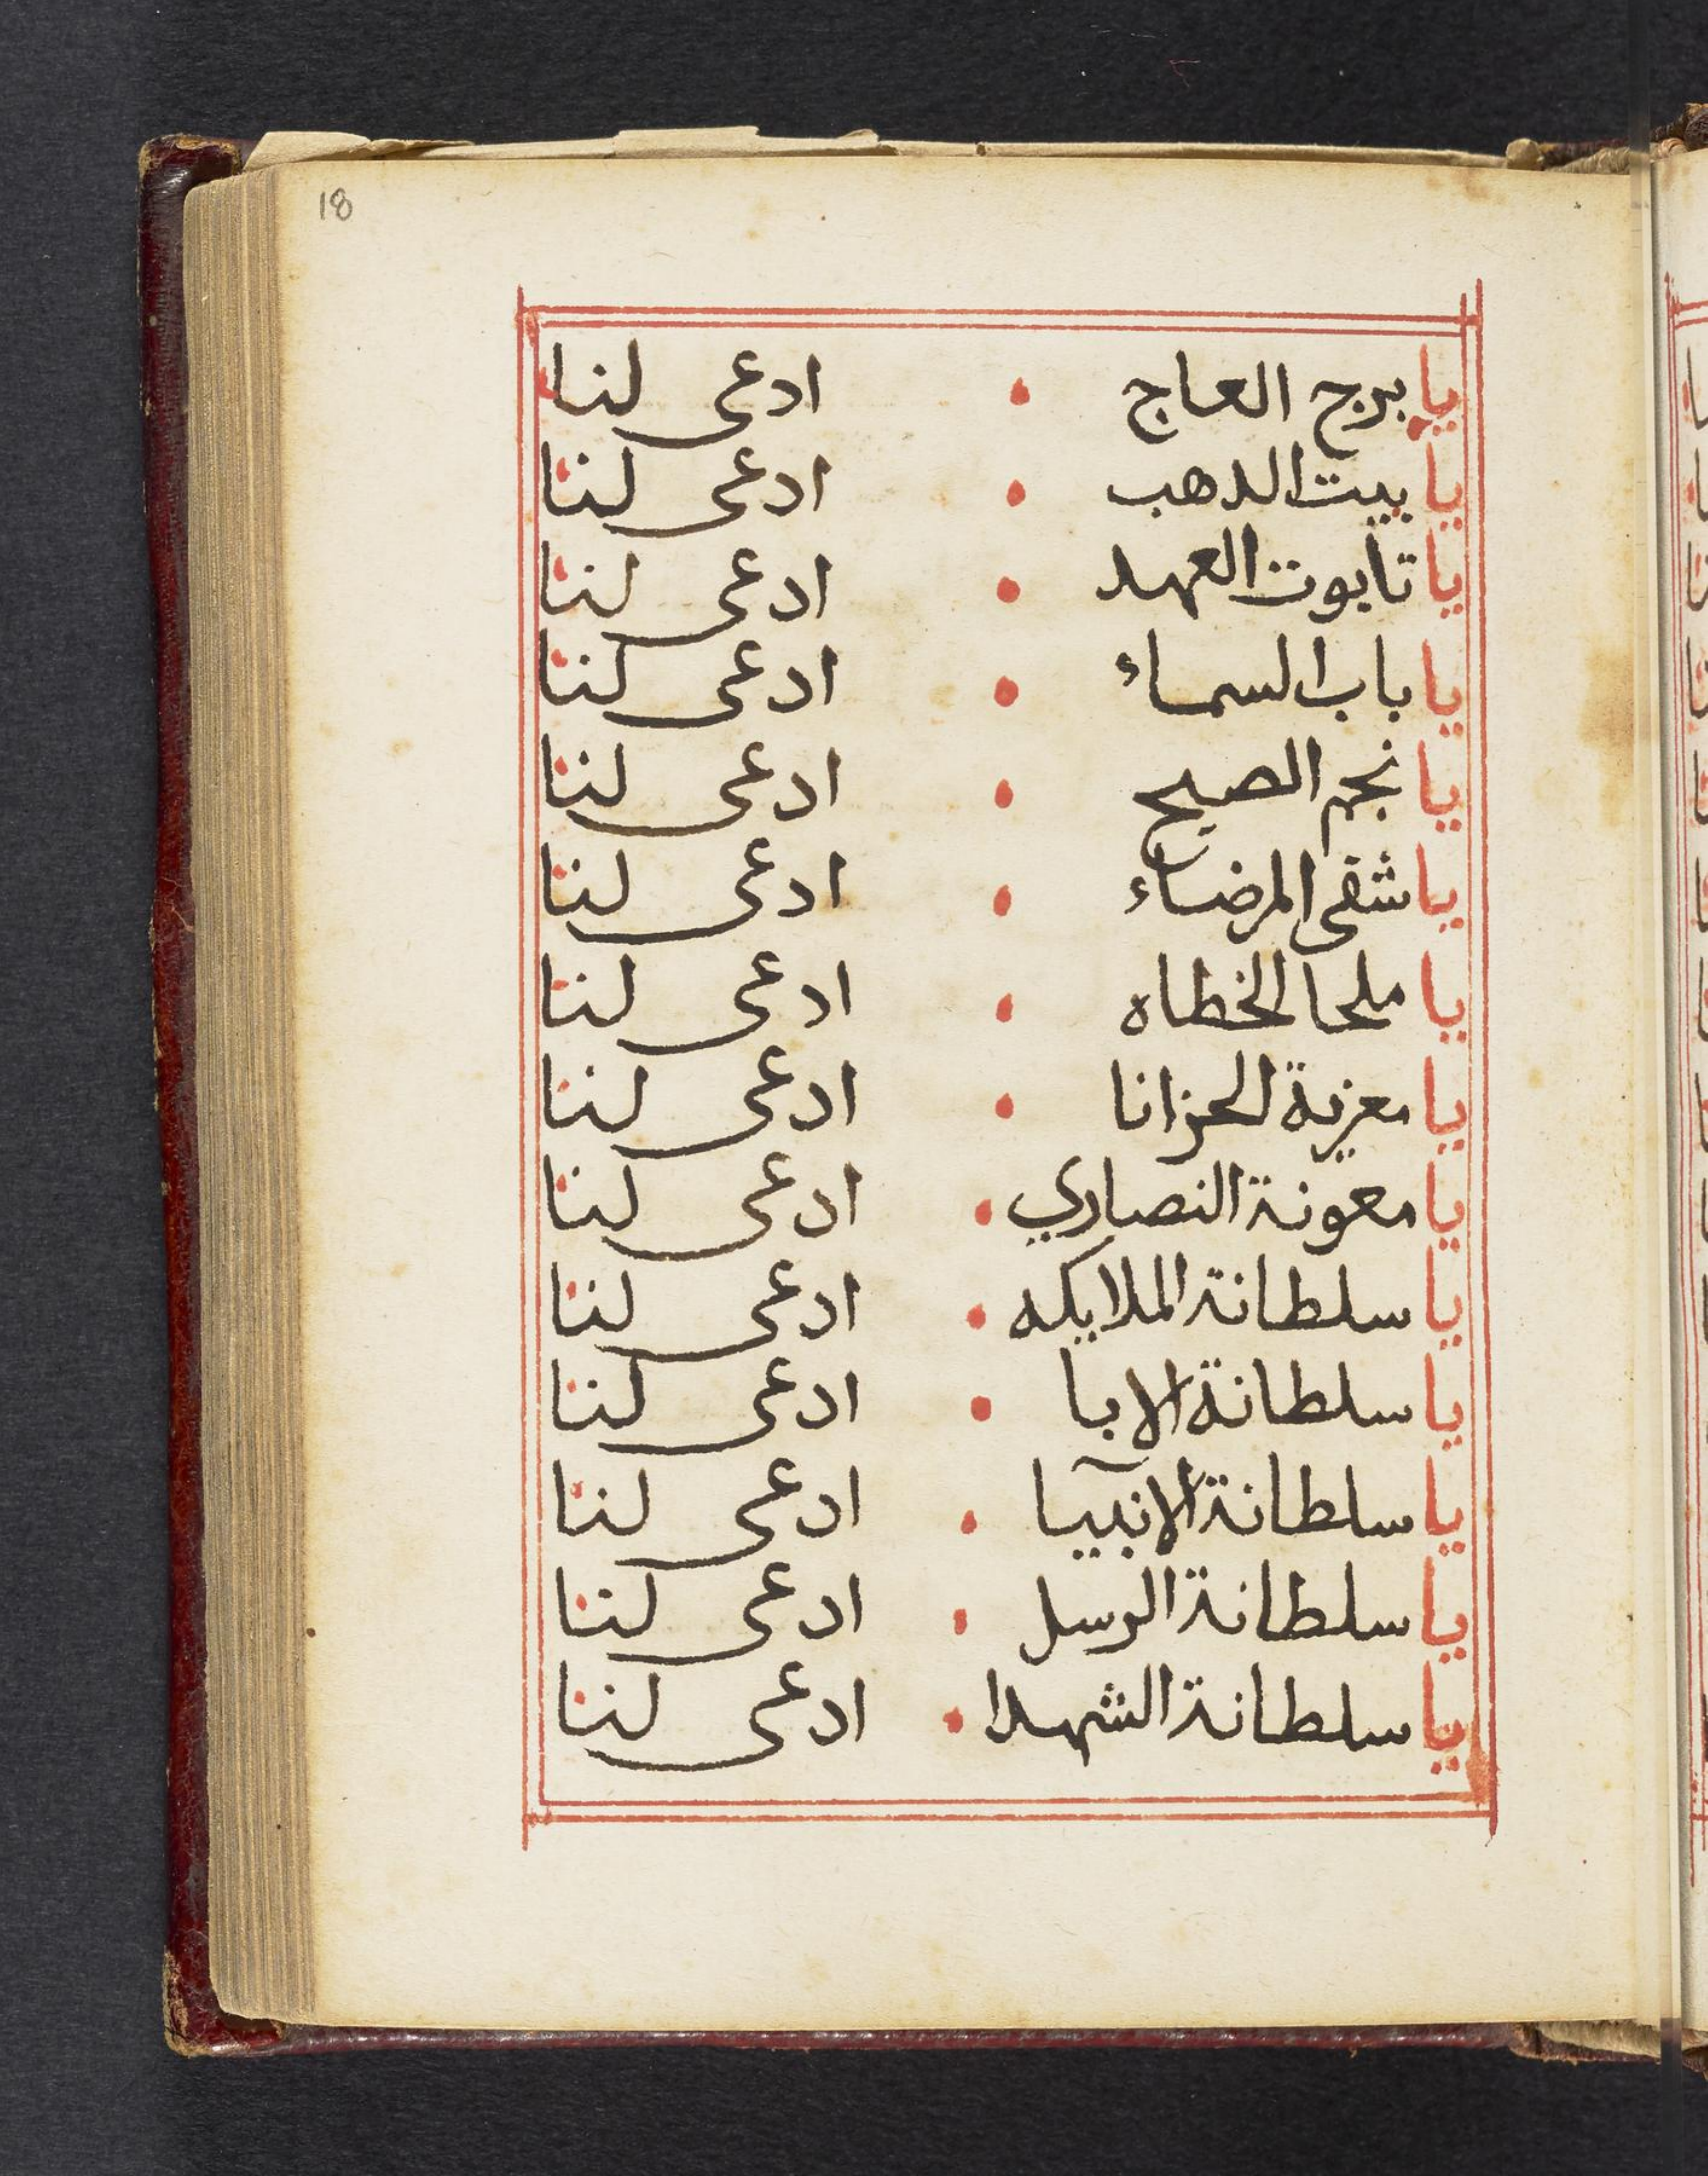 18
يا برج العاج • ادعى لنا
يا بيت الدهب • ادعى لنا
يا تابوت العهد • ادعى لنا
يا باب السماء • ادعى لنا
يا نجم الصبح • ادعى لنا
يا شفى المرضاء • ادعى لنا
يا ملجا الخطاه • ادعى لنا
يا معزية الحزانا • ادعى لنا
يا معونة النصاري • ادعى لنا
يا سلطانة الملايكه • ادعى لنا
يا سلطانة الابا • ادعى لنا
يا سلطانة الانبيا • ادعى لنا
يا سلطانة الرسل • ادعى لنا
يا سلطانة الشهدا • ادعى لنا